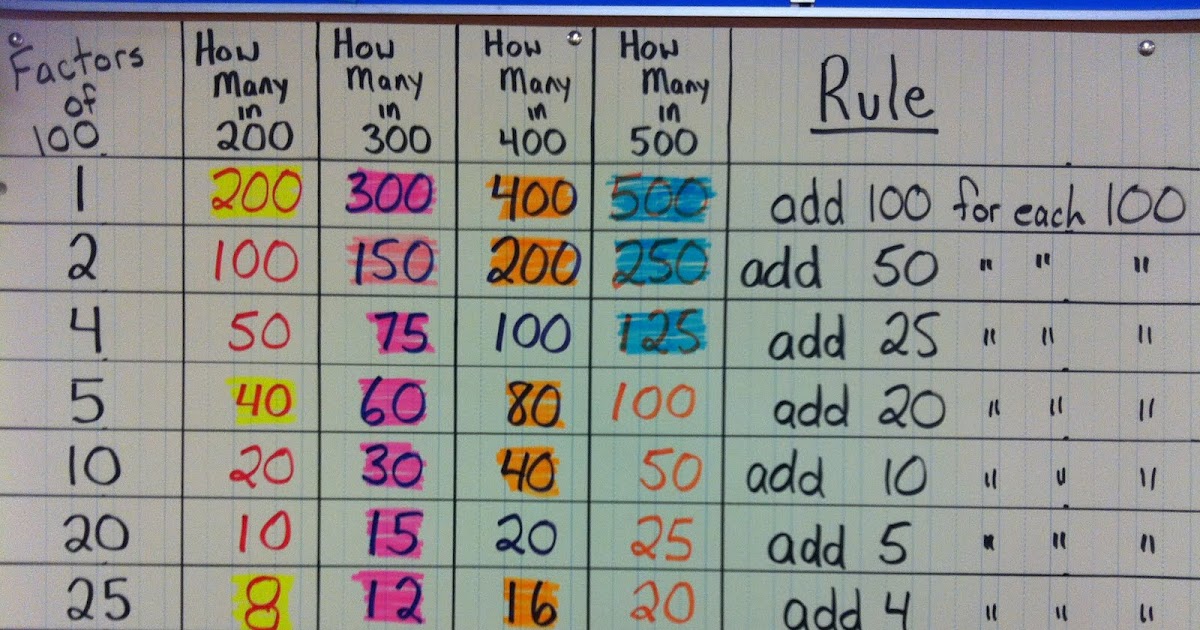 Factors of 100 How Many in 200 How Many in 300 How Many in 400 How Many in 500 Rule
1 200 300 400 500 add 100 for each 100
2 100 150 200 250 add 50 " " "
4 50 75 100 125 add 25 " " "
5 40 60 80 100 add 20 " " "
10 20 30 40 50 add 10 " " "
20 10 15 20 25 add 5 " " "
25 8 12 16 20 add 4 " " "